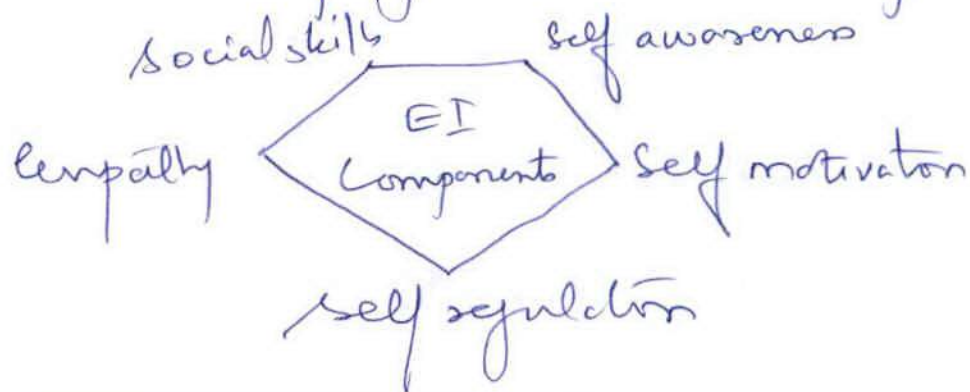 Social skills
Self awareness
EI
Components
Empathy
Self motivation
Self regulation